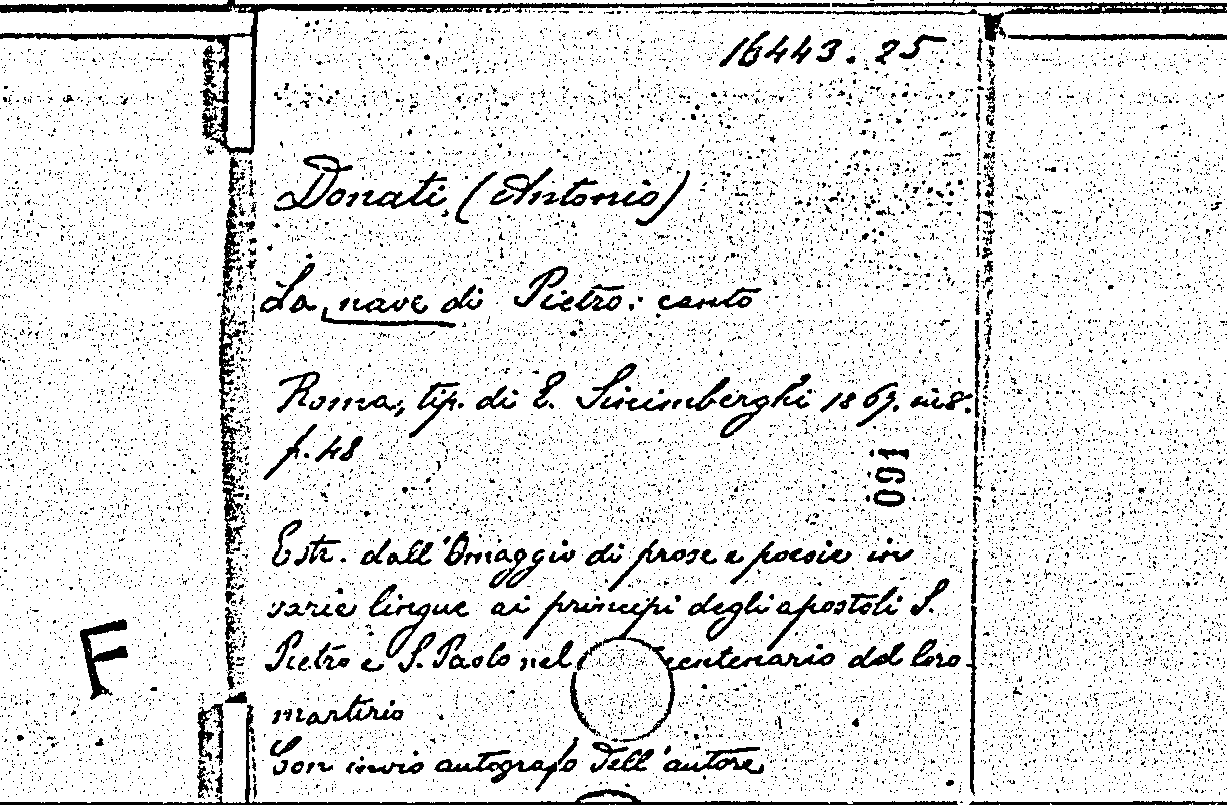 16443.25
Donati, (Antonio)
La nave di Pietro: canto
Roma, tip. di E. Sinimberghi 1869. in 8.
p. 48
091
Estr. dall'Omaggio di prose e poesie in
varie lingue ai principi degli apostoli S.
Pietro e S. Paolo nel centenario del loro
martirio
Con invio autografo dell'autore
F